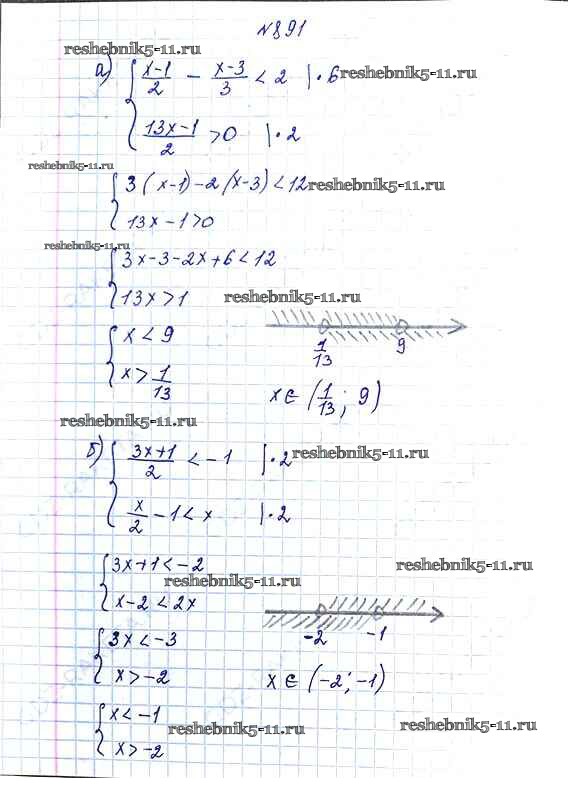 №891
reshebnik5-11.ru
а) { (x-1)/2 - (x-3)/3 < 2 | · 6 reshebnik5-11.ru
(13x-1)/2 > 0 | · 2
reshebnik5-11.ru
{ 3(x-1)-2(x-3)<12 reshebnik5-11.ru
13x-1>0
reshebnik5-11.ru
{ 3x-3-2x+6<12
13x>1 reshebnik5-11.ru
{ x<9
x> 1/13
1/13 9
x∈(1/13; 9)
reshebnik5-11.ru
б) { (3x+1)/2 < -1 | · 2 reshebnik5-11.ru
x/2 -1<x | · 2
{ 3x+1<-2 reshebnik5-11.ru
reshebnik5-11.ru
x-2<2x
-2 -1
{ 3x<-3
x>-2
x∈(-2;-1)
{ x<-1 reshebnik5-11.ru reshebnik5-11.ru
x>-2